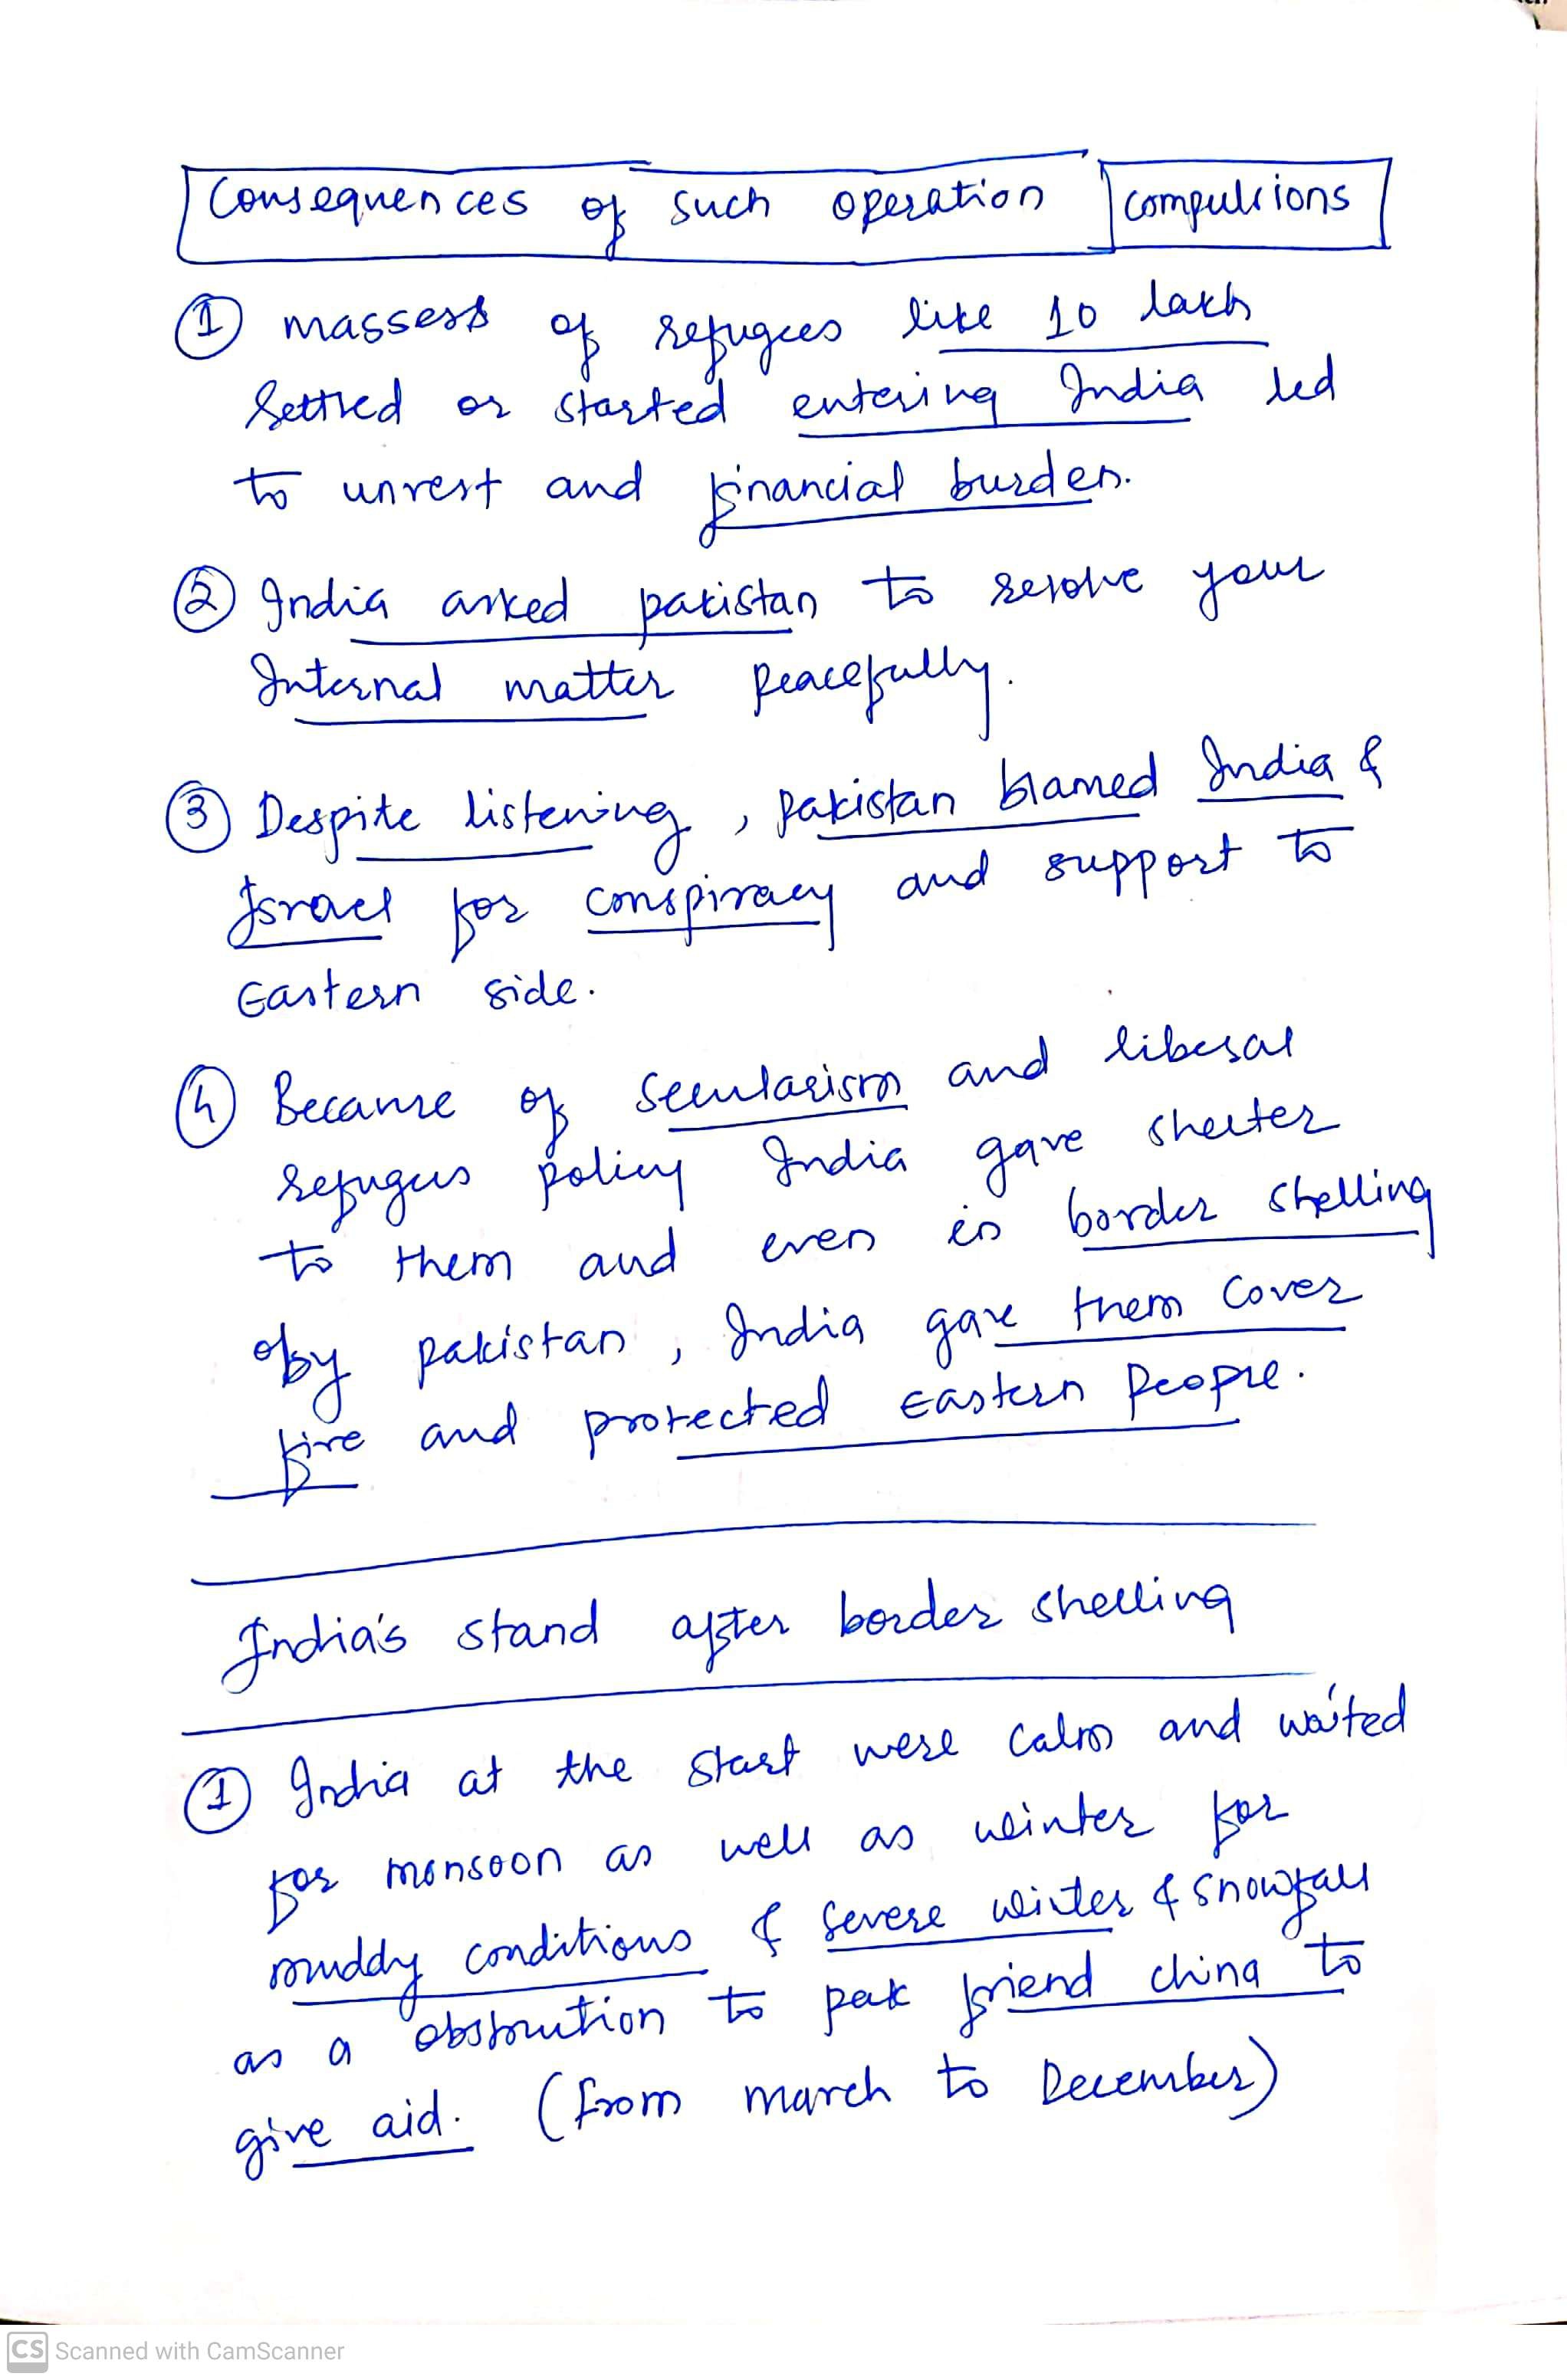 Consequences of such operation compulsions
① massess of refugees like 10 lakh
settled or started entering India led
to unrest and financial burden.
② India asked pakistan to resolve your
Internal matter peacefully.
③ Despite listening, pakistan blamed India &
Israel for conspiracy and support to
Eastern side.
④ Because of secularism and liberal
refugees policy India gave shelter
to them and even in border shelling
by pakistan, India gave them cover
fire and protected Eastern people.
India's stand after border shelling
① India at the start were calm and waited
for monsoon as well as winter for
muddy conditions & severe winter & snowfall
as a obstruction to pak friend china to
give aid. (from march to December)
CS Scanned with CamScanner